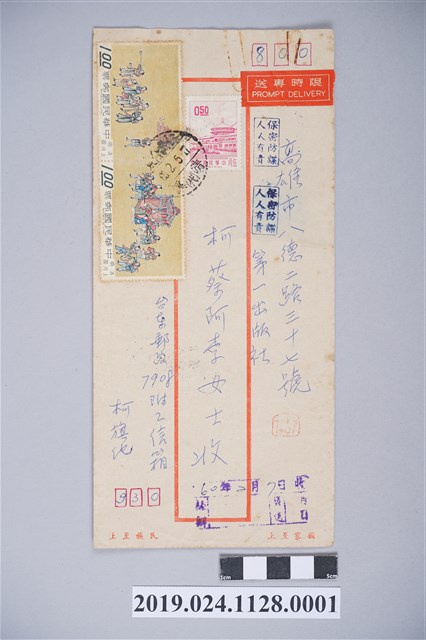 800
限時專送
PROMPT DELIVERY
保密防諜
人人有責
保密防諜
人人有責
高雄市八德二路三十七號
第一出版社
柯蔡阿李女士收
台東郵政7908附2信箱
柯旗化
930
1.00
中華民國郵票
1.00
中華民國郵票
0.50
國家至上
民族至上
1cm
5cm
2019.024.1128.0001